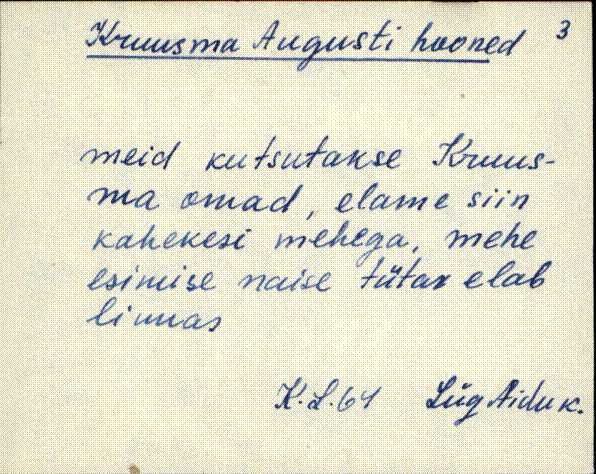 Kruusma Augusti hooned 3
meid kutsutakse Kruus-
ma omad, elame siin
kahekesi mehega, mehe
esimise naise tütar elab
linnas
K.L.64 Lüg Aidu k.